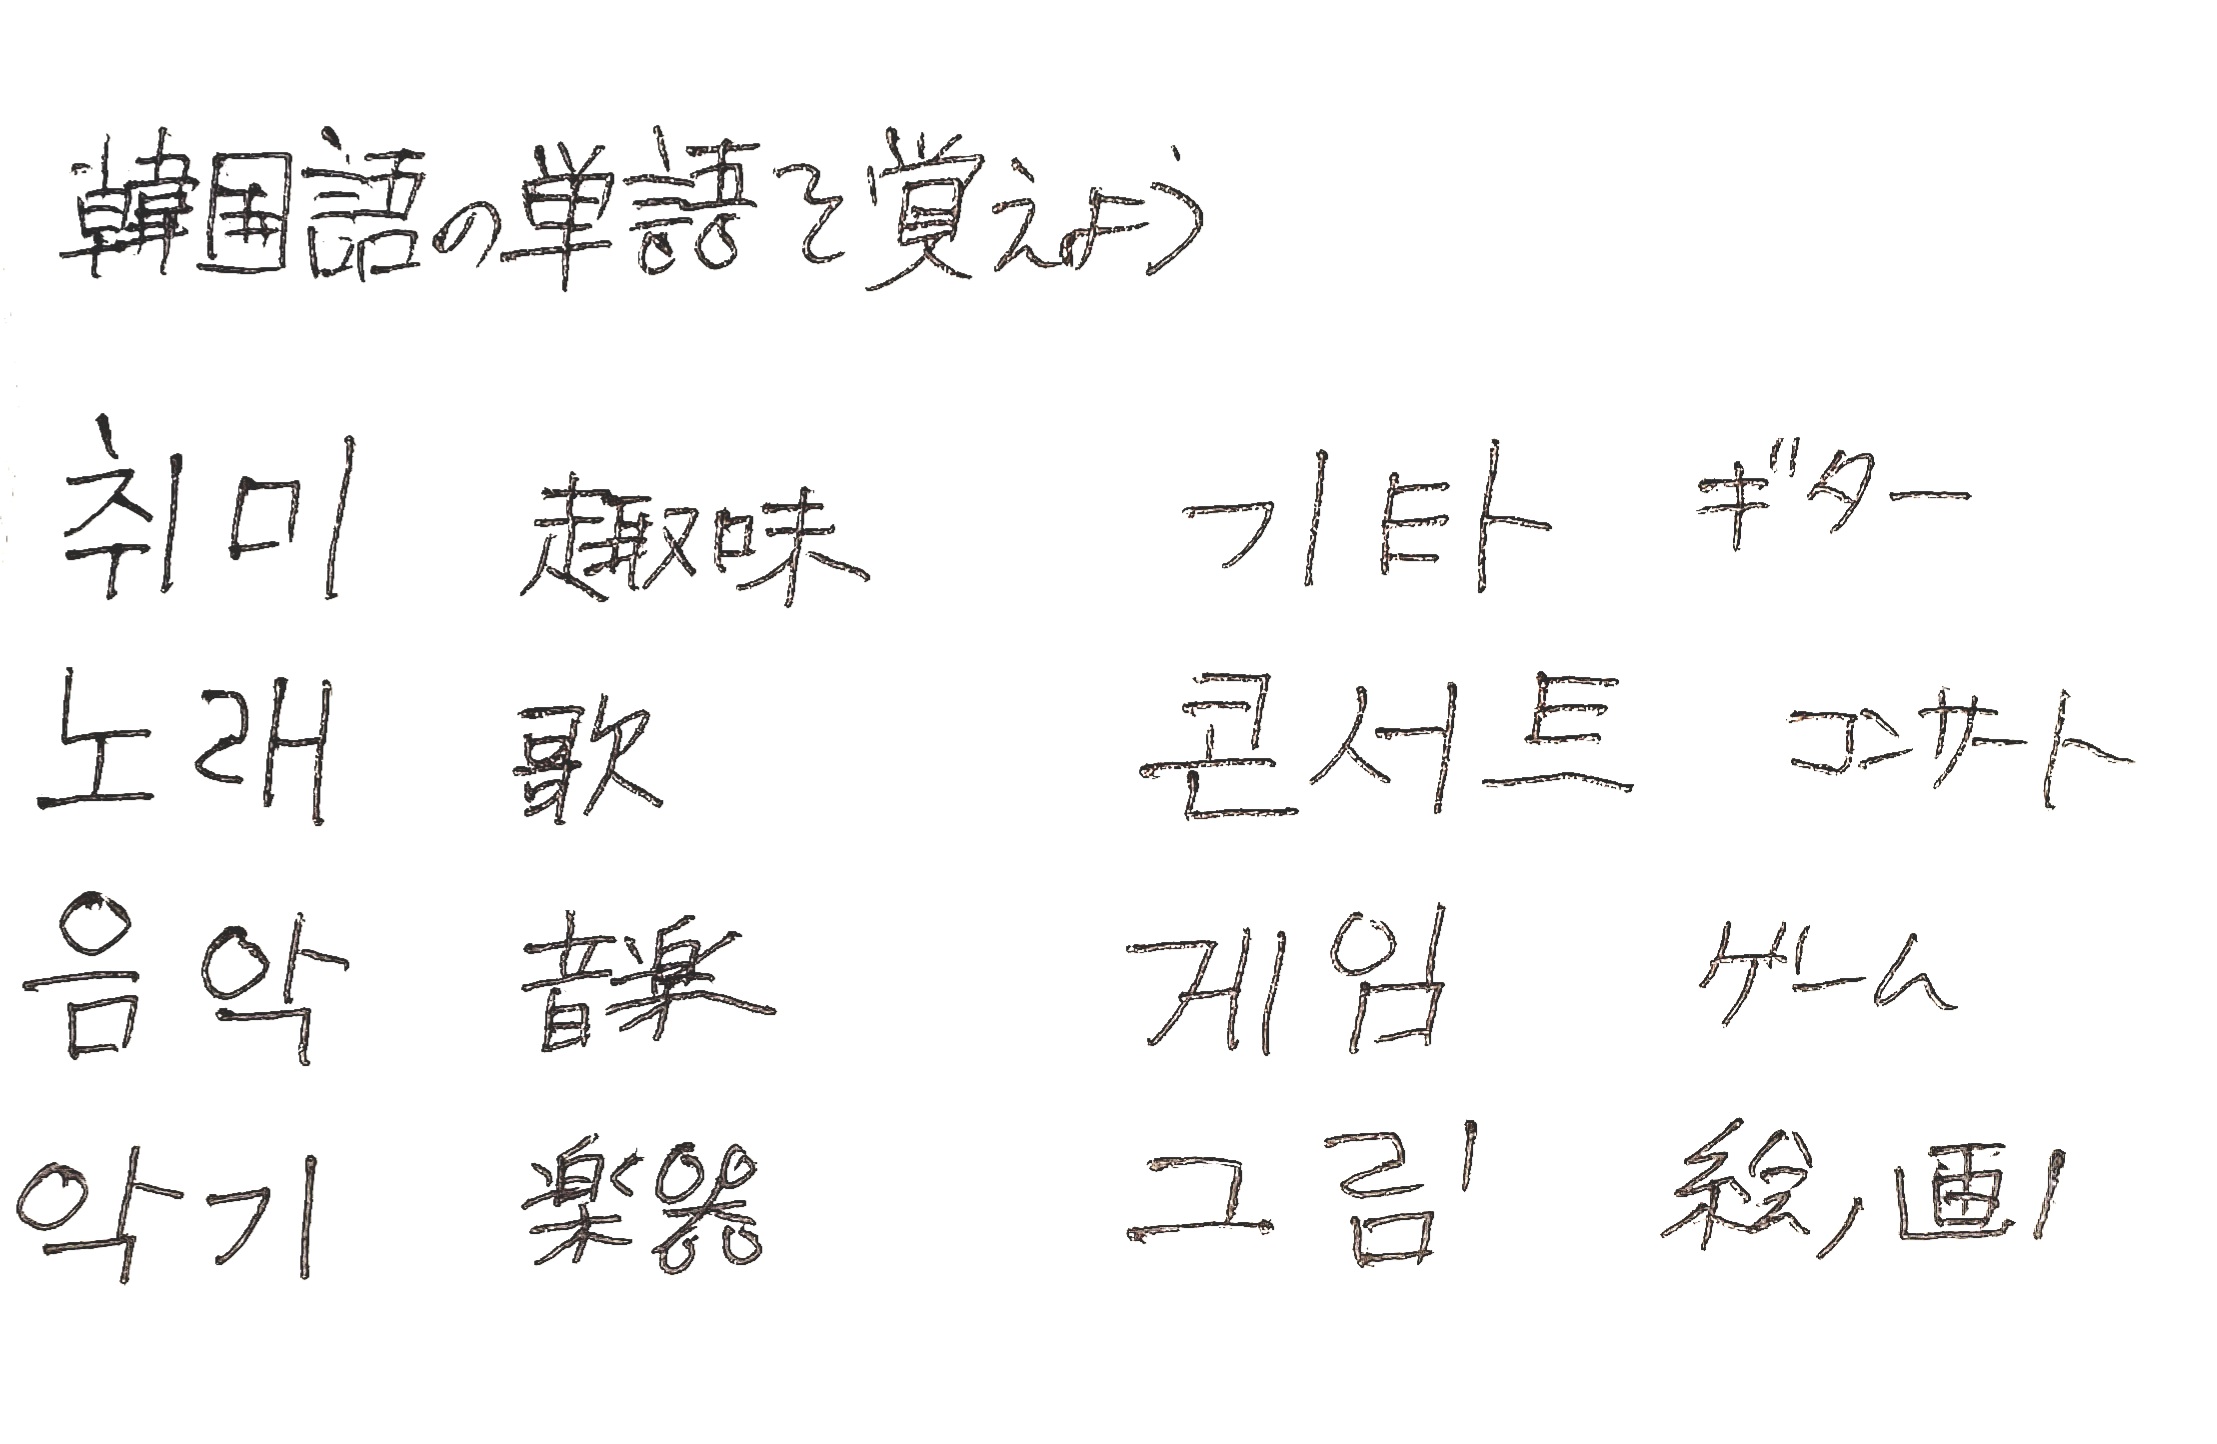 韓国語の単語を覚えよう
취미 趣味 기타 ギター
노래 歌 콘서트 コンサート
음악 音楽 게임 ゲーム
악기 楽器 그림 絵,画